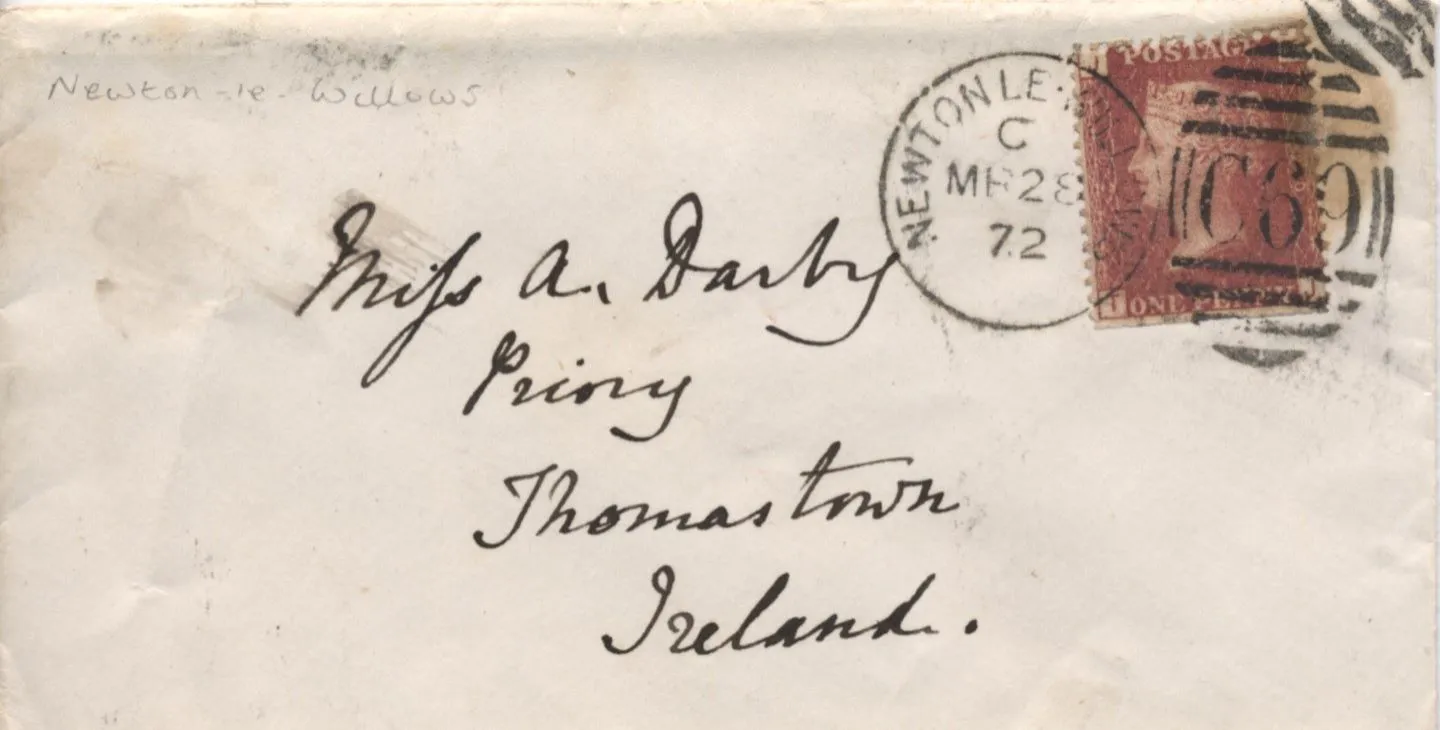 Newton-le-Willows
NEWTON LE
C
MR 28
72
POSTAGE
C69
ONE PENNY
Miss A. Darby
Priory
Thomastown
Ireland.